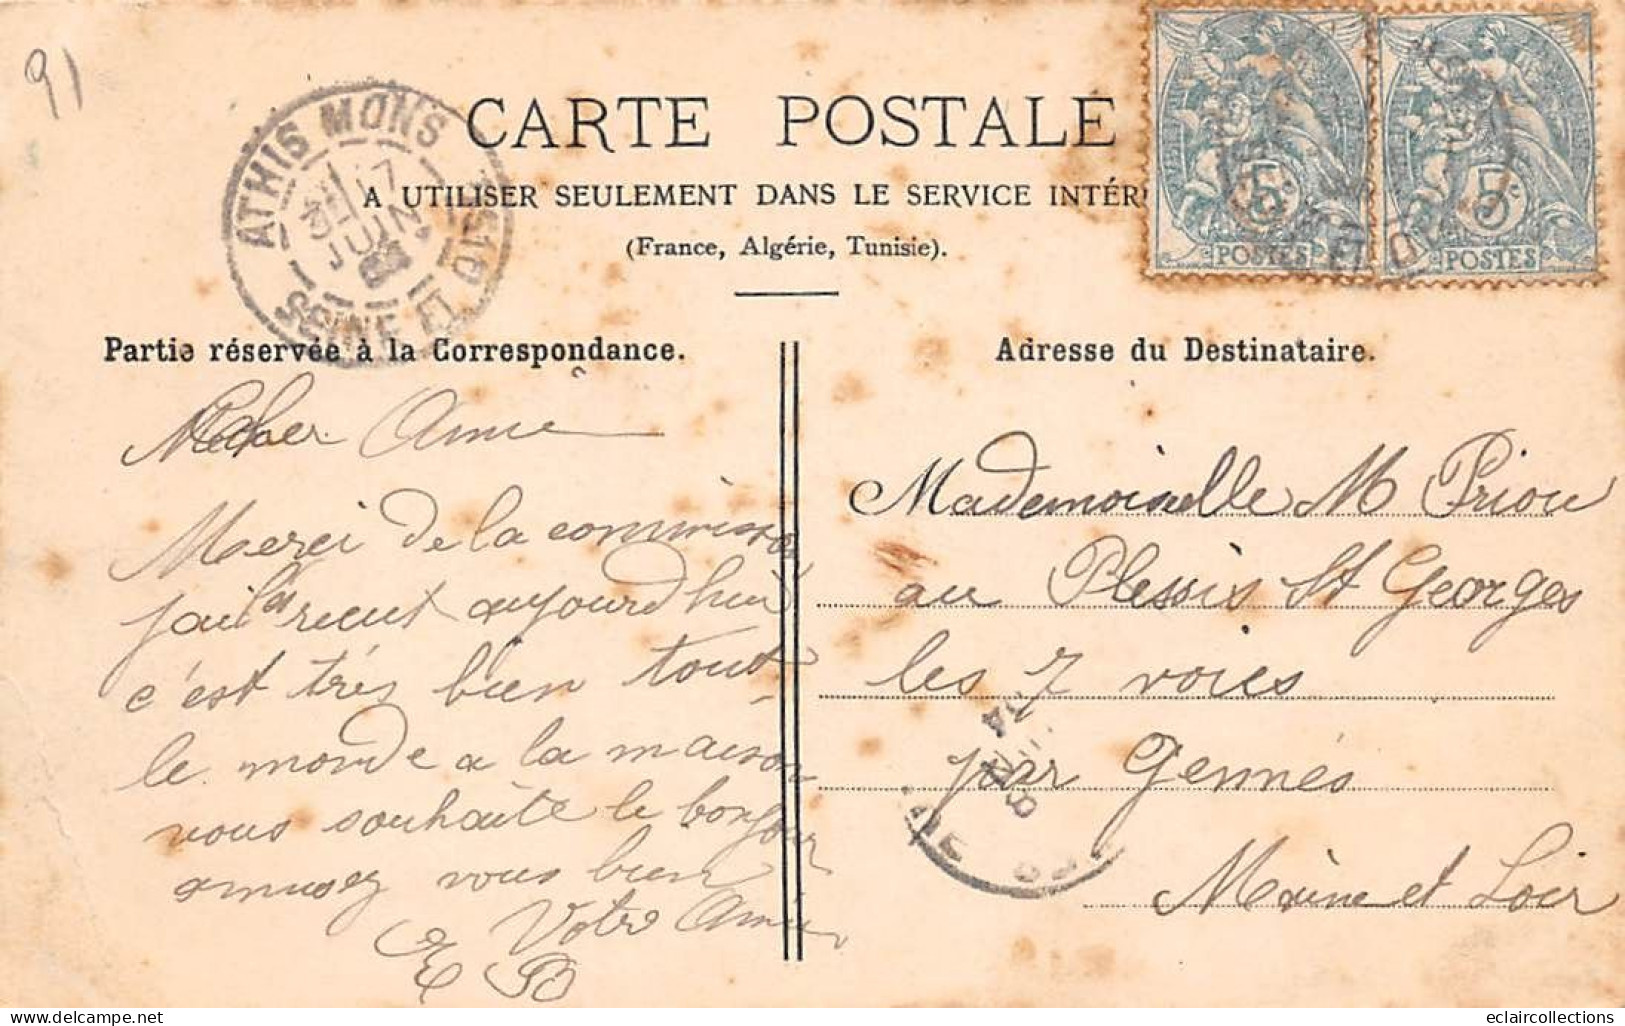 91
CARTE POSTALE
A UTILISER SEULEMENT DANS LE SERVICE INTÉR
(France, Algérie, Tunisie).
ATHIS MONS
JUIN
SEINE ET
5c
POSTES
5c
POSTES
Partie réservée à la Correspondance.
cher Amie
Merci de la commission
jai la recut aujourd'hui
c'est très bien tout
le monde a la maison
vous souhaite le bonjour
amusez vous bien
Votre Amie
E B
Adresse du Destinataire.
Mademoiselle M Priou
au Plessis St Georges
les 7 voies
par Gennés
Maine et Loir
04
eclaircollections
delcampe.net